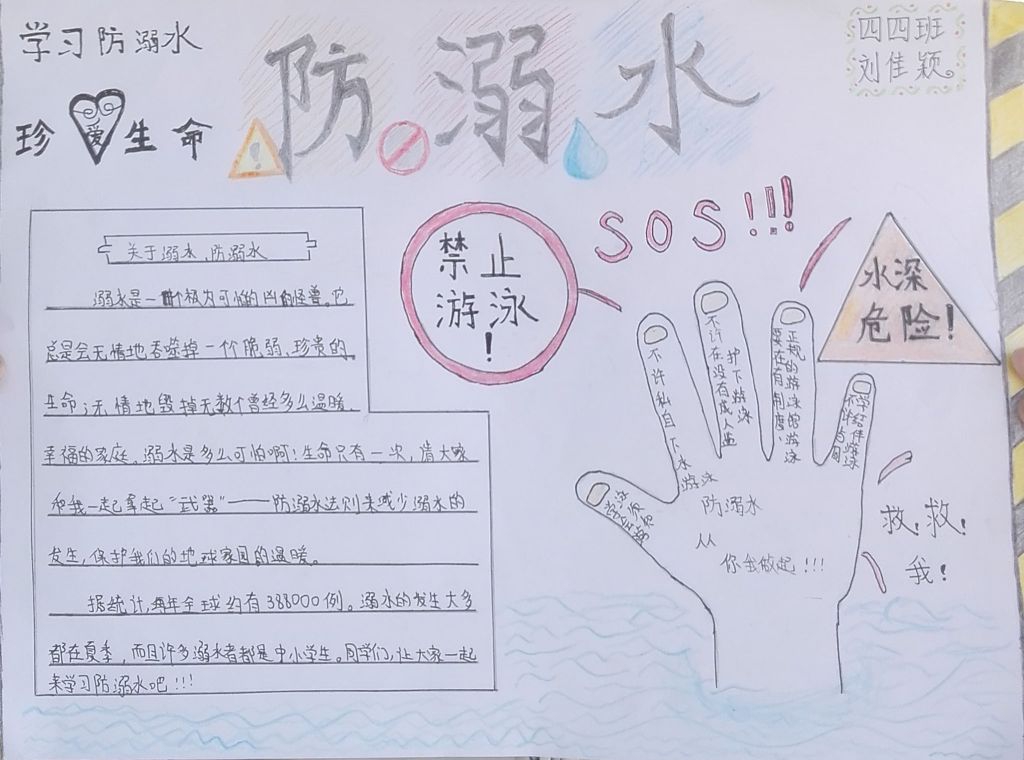 学习防溺水
珍爱生命
防溺水
四四班
刘佳颖。
关于溺水,防溺水
溺水是一个极为可怕的凶兽怪兽,它
总是会无情地吞噬掉一个脆弱、珍贵的
生命;无情地毁掉无数个曾经多么温暖、
幸福的家庭。溺水是多么可怕啊!生命只有一次,请大家
和我一起拿起“武器”——防溺水法则来减少溺水的
发生,保护我们的地球家园的温暖。
据统计,每年全球约有388000例。溺水的发生大多
都在夏季,而且许多溺水者都是中小学生。同学们,让大家一起
来学习防溺水吧!!!
禁止
游泳
!
SOS!!!
水深
危险!
不许私自下水游泳
不许在没有成人监
护下游泳
要在有制度、
正规的游泳馆游泳
防溺水
从
你我做起!!!
救!救!
我!